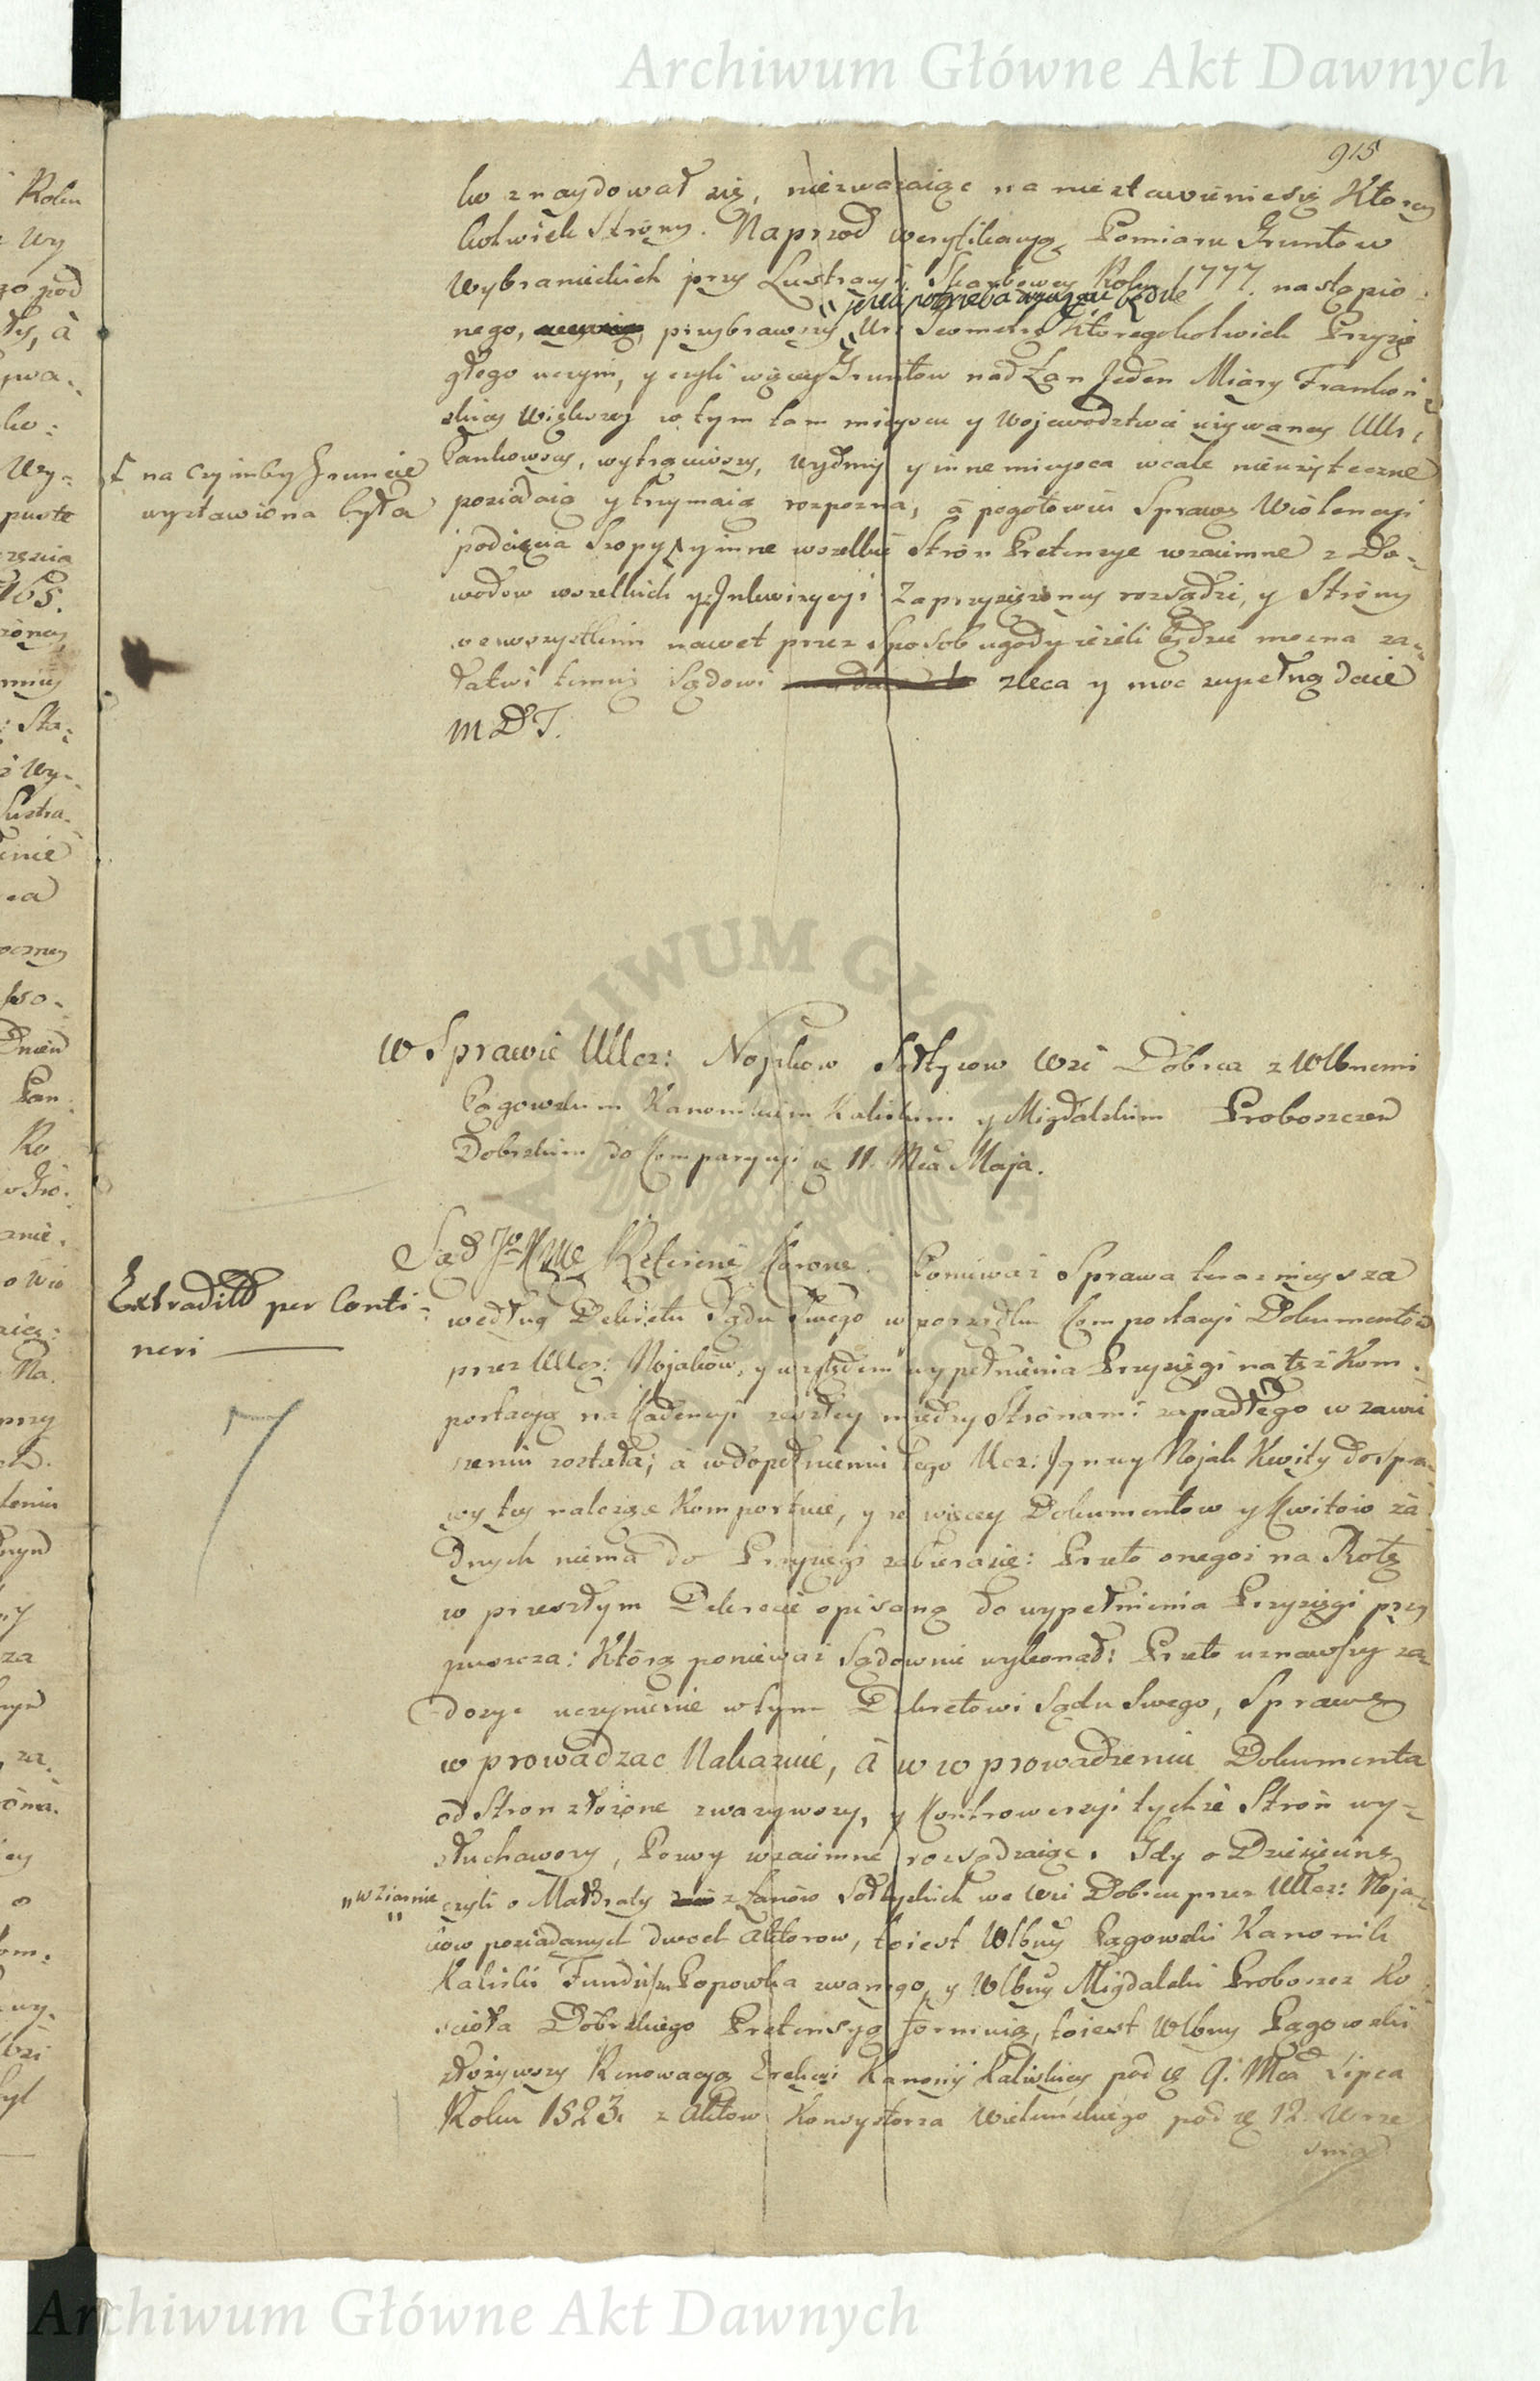 Archiwum Główne Akt Dawnych
915
ko znaydował się, niezważaiąc na niestawienie się Ktorey
kolwiek Strony. Naprzod weryfikacyą Pomiaru Gruntow
Wybranieckich przy Lustracyi Skarbowey Roku 1777. nastąpio
jeżeli potrzeba będzie
nego, przybrawszy Ur: Geometrę Ktoregokolwiek Przysię
głego uczyni, y czyli więcey Gruntow nad Łan Jeden Miary Frankoń
skiey Większey w tym tam mieyscu y Wojewodztwie używaney Ur:
Pankowscy, wytrąciwszy, Wydmy y inne mieysca wcale nieużyteczne
na czyimby Gruncie
wystawiona była
posiadaią y trzymaią rozpozna, à pogotowiu Sprawę Wiolencyi
podcięcia Szopy, y inne wszelkie Stron Pretensye wzaiemne z Do-
wodow wszelkich y Inkwizycyi Zaprzysiężoney rozsądzi, y Strony
we wszystkim nawet przez Sposob ugody ieżeli będzie można za-
łatwi temuż Sądowi zleca y moc zupełną daie
M D T.
W Sprawie UUcz: Nojkow Sołtysow Wsi Dobrca z Wlbnemi
Pągowskim Kanonikiem Kaliskim y Migdalskim Proboszczem
Dobrskim do Comparycyi d. 11. Mca Maja.
Sąd JoKMci Refereni: Koronne. Ponieważ Sprawa teraznieysza
Extradітꝰ per Conti-
neri
według Dekretu Sądu Swego w porządku Comportacyi Dokumentow
przez UUcz: Nojakow, y względem wypełnienia Przysięgi na też Kom-
portacyą na Kadencyi zeszłey między Stronami zapadłego w zawie
szeniu została; à w dopełnieniu tego Ucz: Jgnacy Nojak Kwity do spra-
wy tey należące Komportuie, y że więcey Dokumentow y Kwitow ża
dnych niema do Przysięgi zabieraiąc: Przeto onegoż na Rotę
w przeszłym Dekrecie opisaną do wypełnienia Przysięgi przy
puszcza: Którą ponieważ Sądownie wykonał: Przeto uznawszy za
dosyc uczynienie w tym Dekretowi Sądu Swego, Sprawę
wprowadzac Nakazuie, à w wprowadzeniu Dokumenta
od Stron złożone zważywszy, y Kontrowersyi tychże Stron wy-
słuchawszy, Pozwy wzaiemne rozsądzaiąc. Gdy o Dziesięcinę
w Ziarnie
czyli o Małdraty z Łanów Sołtyskich we Wsi Dobrcu przez UUcz: Noja-
ków posiadanych dwoch Aktorow, toiest Wlbny Pągowski Kanonik
Kaliski Funduszu Popowka zwanego, y Wlbny Migdalski Proboszcz Ko
scioła Dobrskiego Pretensyą formuią, toiest Wlbny Pągowski
złożywszy Renowacyą Erekcyi Kanonij Kaliskiey pod d. 9. Mca Lipca
Roku 1523. z Aktow Konsystorza Wieluńskiego pod d. 12. Wrze
snia
Archiwum Główne Akt Dawnych